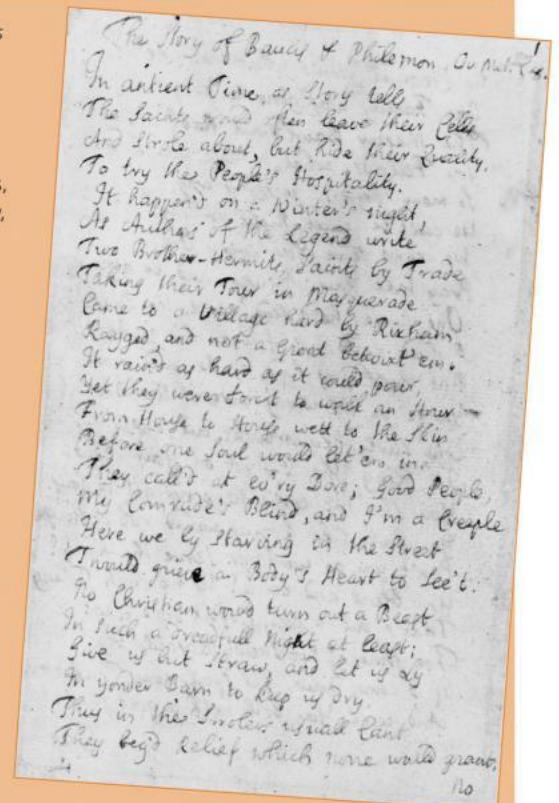 s
s,
,
1
The Story of Baucis & Philemon. Ov. Met. 8.
In antient Time, as Story tells
The Saints would often leave their Cells
And Strole about, but hide their Quality,
To try the People's Hospitality.
It happen'd on a Winter's night,
As Authors of the Legend write
Two Brother-Hermits, Saints by Trade
Taking their Tour in Masquerade
Came to a Village hard by Rixham
Ragged, and not a Groat betwixt 'em.
It rain'd as hard as it could pour,
Yet they were forc't to walk an Hour
From House to House wett to the Skin
Before one Soul would let 'em in.
They call'd at ev'ry Dore; Good People,
My Comrade's Blind, and I'm a Creeple
Here we ly starving in the Street
'Twould grieve a Body's Heart to see't:
No Christian would turn out a Beast
In such a dreadfull Night at least;
Give us but Straw, and let us Ly
In yonder Barn to keep us dry.
Thus in the Strolers usuall Cant
They beg'd Relief which none would grant;
No